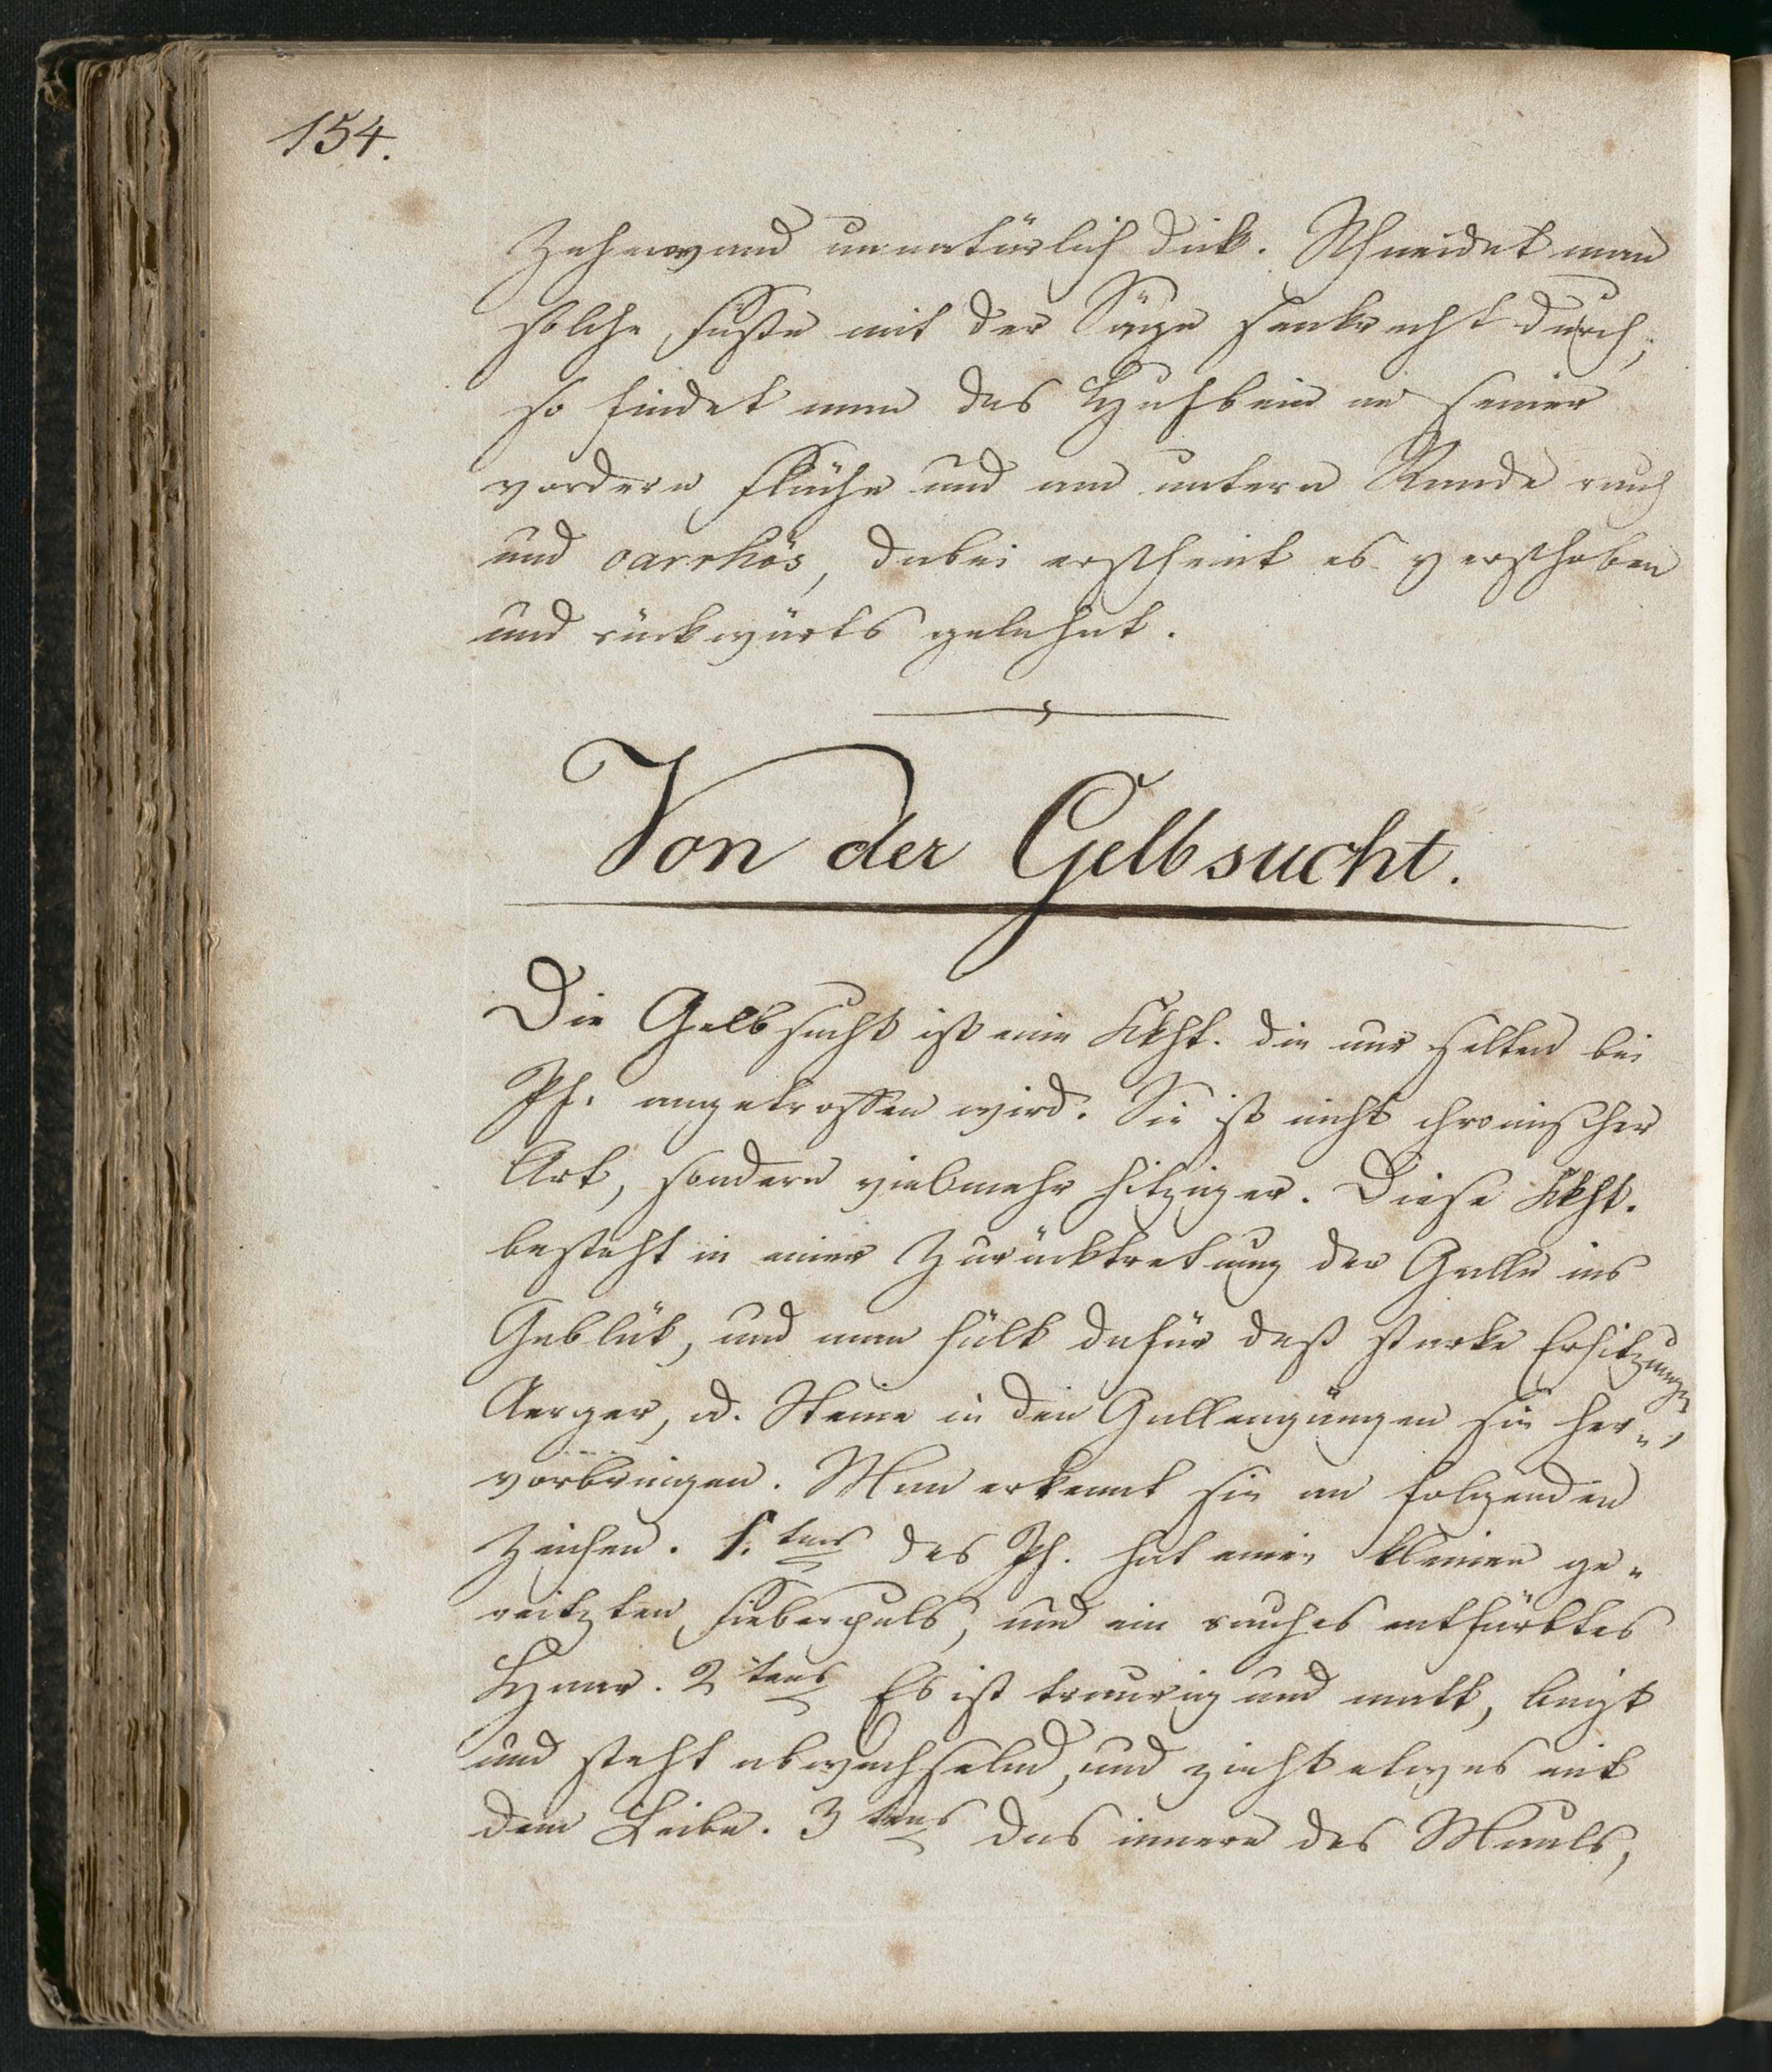 154.
Zehenwand unnatürlich dick. Schneidet man
solche Füße mit der Säge senkrecht durch,
so findet man das Hufbein an seiner
vordern Fläche und am untern Rande rauh
und carrhös, dabei erscheint es verschoben
und rückwärts gelehnt.
Von der Gelbsucht.
Die Gelbsucht ist eine Kkht. die nur selten bei
Pf. angetroffen wird. Sie ist nicht chronischer
Art, sondern vielmehr hitziger. Diese Kkht.
besteht in einer Zurücktretung der Galle ins
Geblüt, und man hält dafür daß starke Erhitzungen,
Aerger, od. Steine in den Gallengängen sie her„
vorbringen. Man erkennt sie an folgenden
Zeichen. 1.tens das Pf. hat einen kleinen ge„
reitzten Fieberpuls, und ein rauhes entfärbtes
Haar. 2tens Es ist traurig und matt, liegt
und steht abwechselnd, und zieht etwas mit
dem Leibe. 3tens das innere des Mauls,